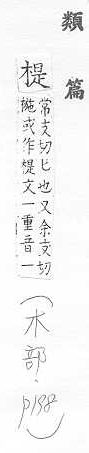 類篇
椻
常支切匕也又余支切
酏或作椻文一重音一
(木部.p198)